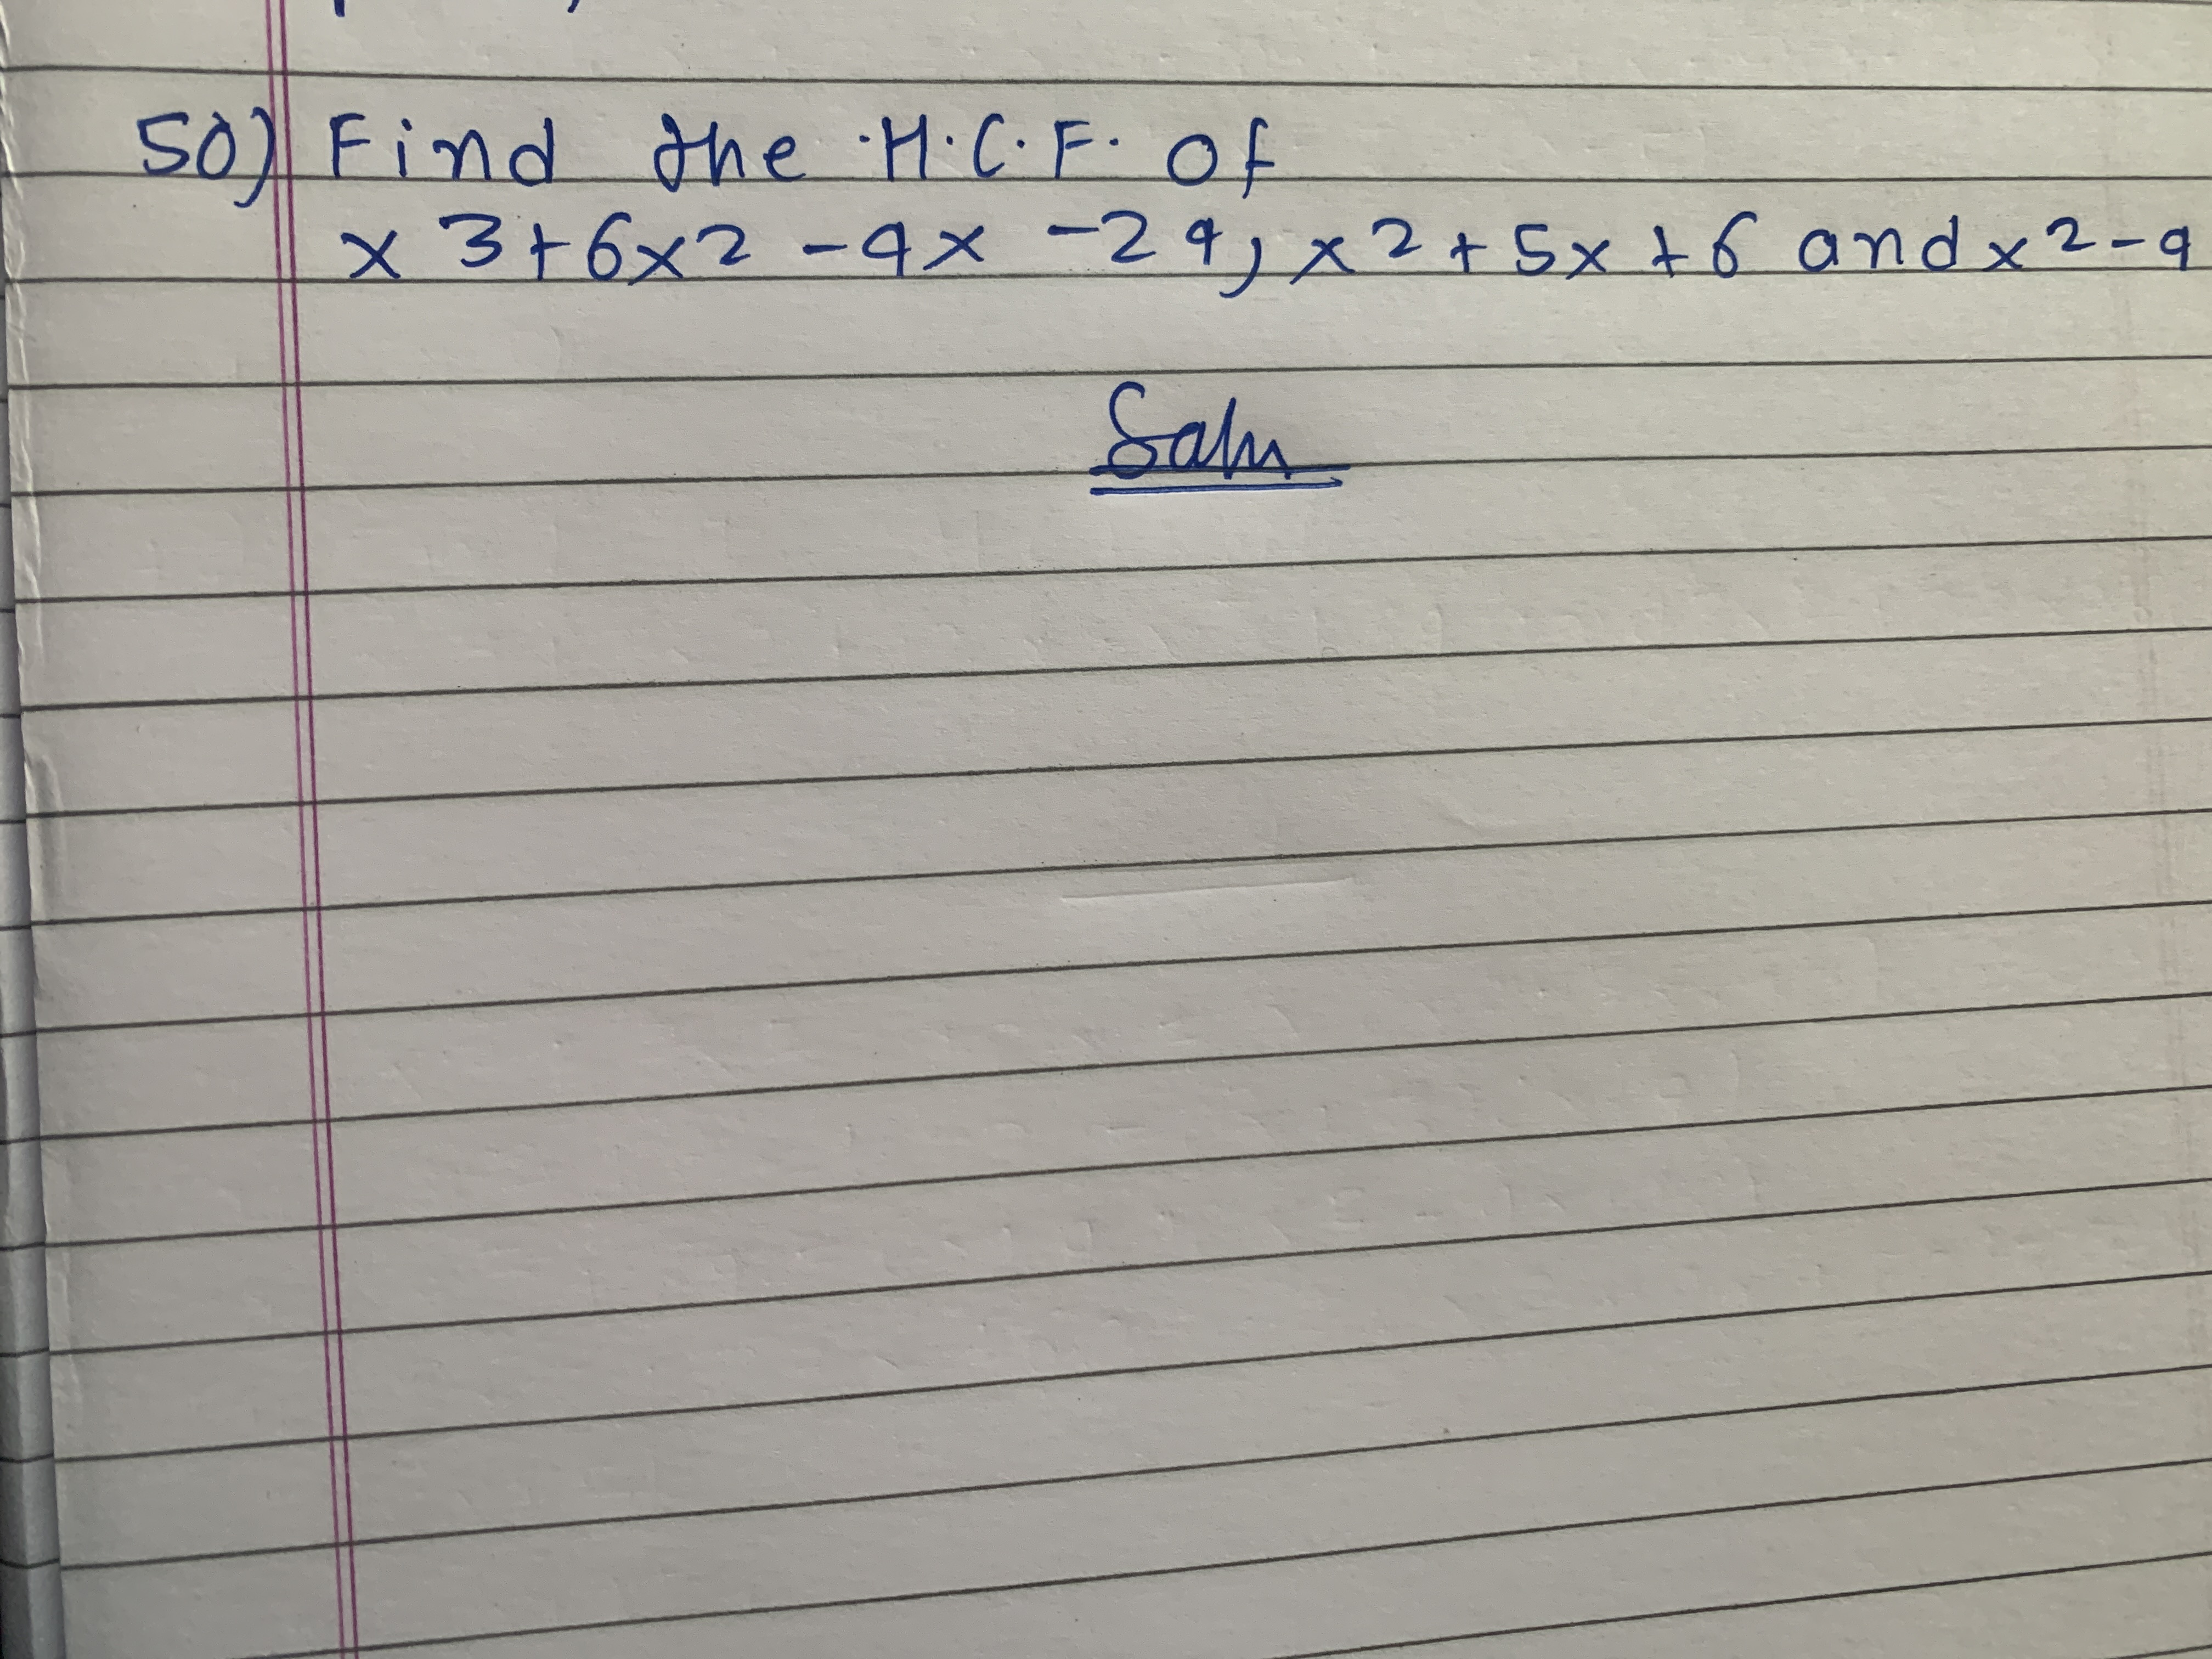 50) Find the H.C.F. of
x 3+6x2 -4x -24, x2+5x+6 and x2-4
Soln